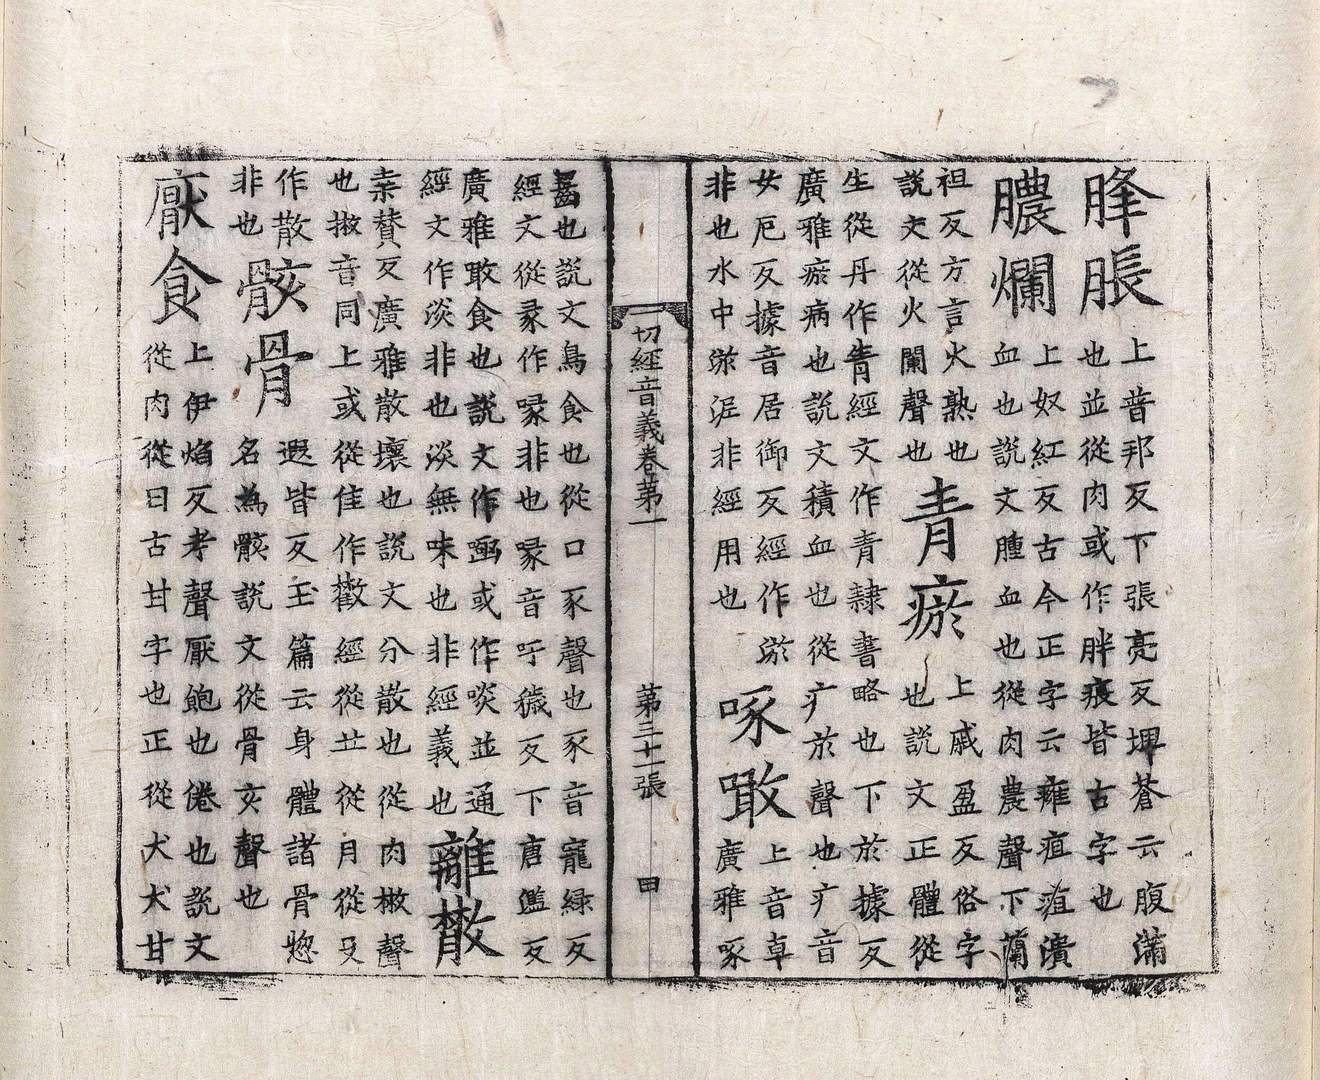 胮脹上普邦反下張亮反埤蒼云腹滿
也並從肉或作胖痮皆古字也
膿爛上奴紅反古今正字云癰疽疽潰
血也說文腫血也從肉農聲下蘭
祖反方言火熟也
說文從火闌聲也
青瘀上戚盈反俗字
也說文正體從
生從丹作靑經文作青隷書略也下於據反
廣雅瘀病也說文積血也從疒於聲也疒音
女厄反據音居御反經作淤
非也水中淤泥非經用也
啄噉上音卓
廣雅啄
一切經音義卷第一 第三十一張 田
齧也說文鳥食也從口豕聲也豕音寵緑反
經文從彖作喙非也喙音吁穢反下唐濫反
廣雅敢食也說文作㗖或作啖並通
經文作淡非也淡無味也非經義也
離㪔
桒賛反廣雅散壞也說文分散也從肉㪔聲
也㪔音同上或從隹作㪚經從㐀從月從攵
作散
非也
骸骨遐皆反玉篇云身體諸骨惣
名為骸說文從骨亥聲也
厭食上伊焰反考聲厭飽也倦也說文
從肉從曰古甘字也正從犬犬甘